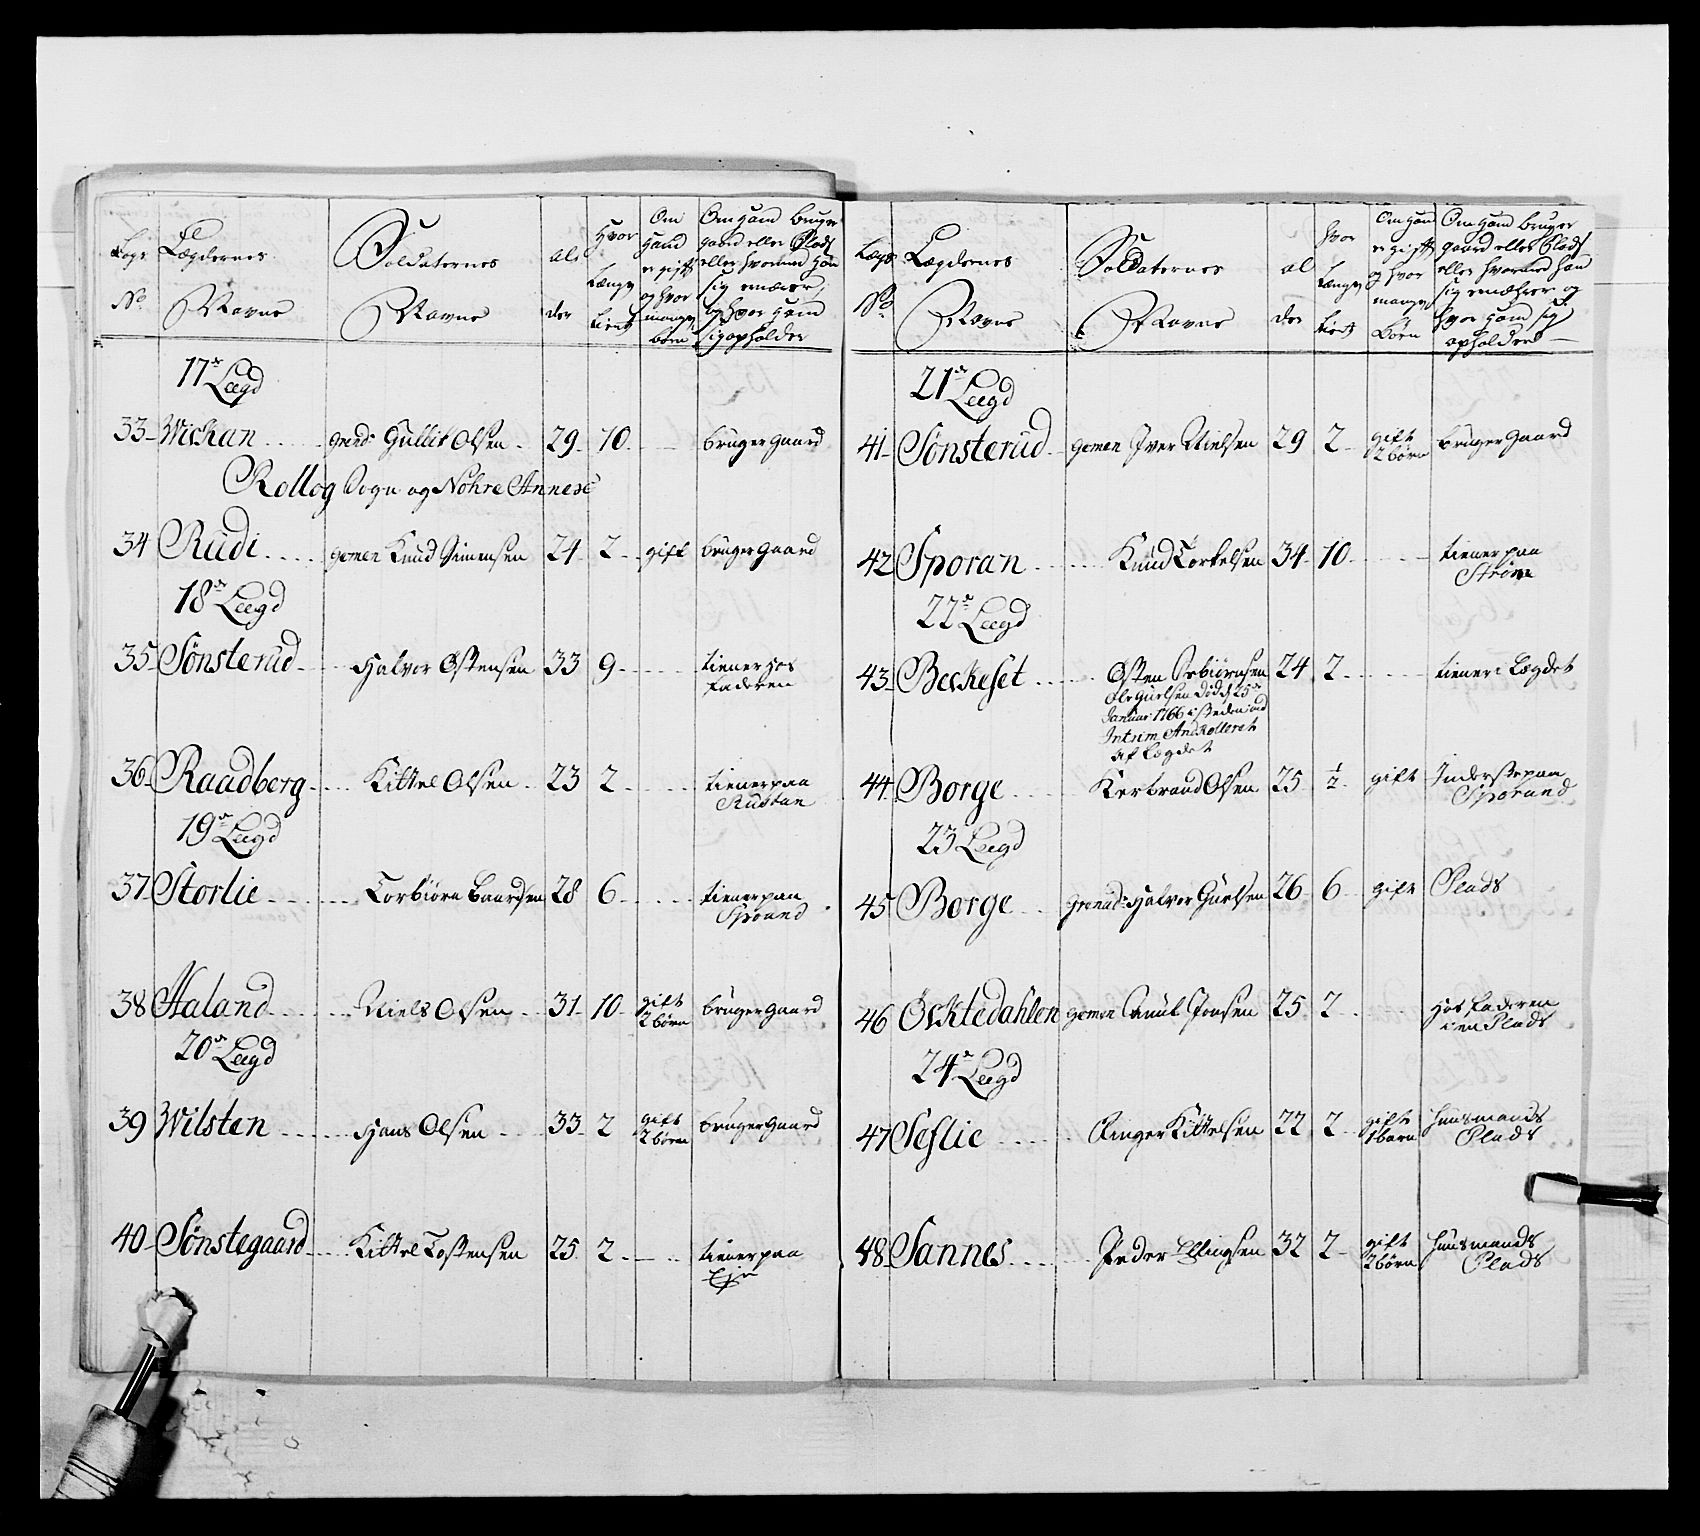 Lægs No
Lægdernes Navne
Soldaternes Navne
al der
Hvor Længe tient
Om Hand er gift og hvor mange børn
Om Hand bruger gaard eller Plads eller hvormed han sig ernærer, og hvor Hand sig opholder
17de Lægd
33 Wichan gren: Gullik Olsen 29 10 bruger Gaard
Rollog Sogn og Nohre Annex
34 Rudi gemen Knud Simensen 24 2 gift bruger Gaard
18de Lægd
35 Sønsterud Halvor Østensen 33 9 tiener hos Faderen
36 Raadberg Kittel Olsen 23 2 tiener paa Rustan
19de Lægd
37 Storlie Torbiørn Baardsen 28 6 tiener paa Sporand
38 Haland Niels Olsen 31 10 gift 2 børn bruger Gaard
20de Lægd
39 Wilsten Hans Olsen 33 2 gift 2 børn bruger Gaard
40 Sønstegaard Kittel Tostensen 25 2 tiener paa
Lægs No
Lægdernes Navne
Soldaternes Navne
al der
Hvor Længe tient
Om Hand er gift og hvor mange Børn
Om Hand bruger gaard eller Plads eller hvormed han sig ernæhrer og hvor Hand sig opholder
21de Lægd
41 Sønsterud gemen Iver Nielsen 29 2 gift 2 børn bruger Gaard
42 Sporan Knud Torkelsen 34 10 tiener paa Strøm
22de Lægd
43 Beskeset Østen Torbiørnsen 24 2 tiener i Lægdet
Januar 1766
af Lægdet
44 Borge Olsen 25 1/2 gift Inderst paa Sporand
23 Lægd
45 Borge grenad: Halvor Guulsen 26 6 gift Plads
46 gemen Knut Jonsen 25 2 hos Faderen i en Plads
24de Lægd
47 Seslie Kittelsen 22 2 gift 1 barn Huusmands Plads
48 Sannes Peder Ellingsen 32 2 gift 2 børn Huusmands Plads